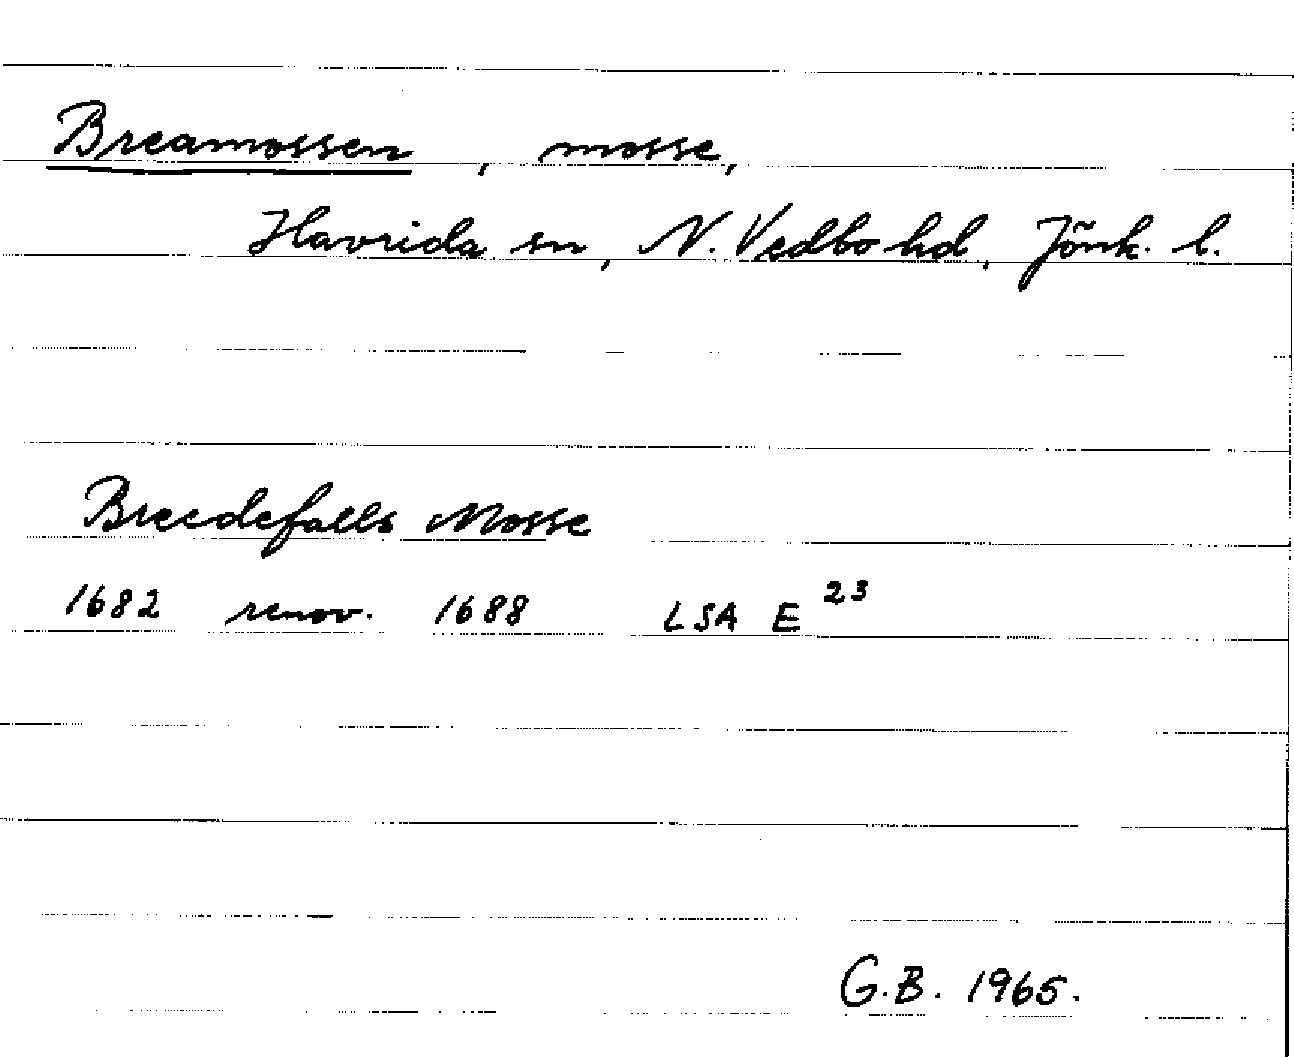 Breamossen, mosse,
Flavrida sn, N. Vedbo hd, Jönk. l.
Breedefalls Mosse
1682 renov. 1688 LSA E 23
G.B. 1965.